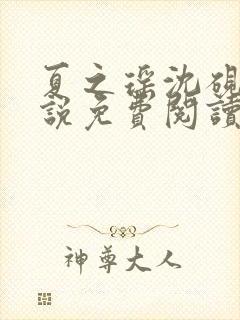 夏之瑶沈硯
說免費閱讀
神尊大人